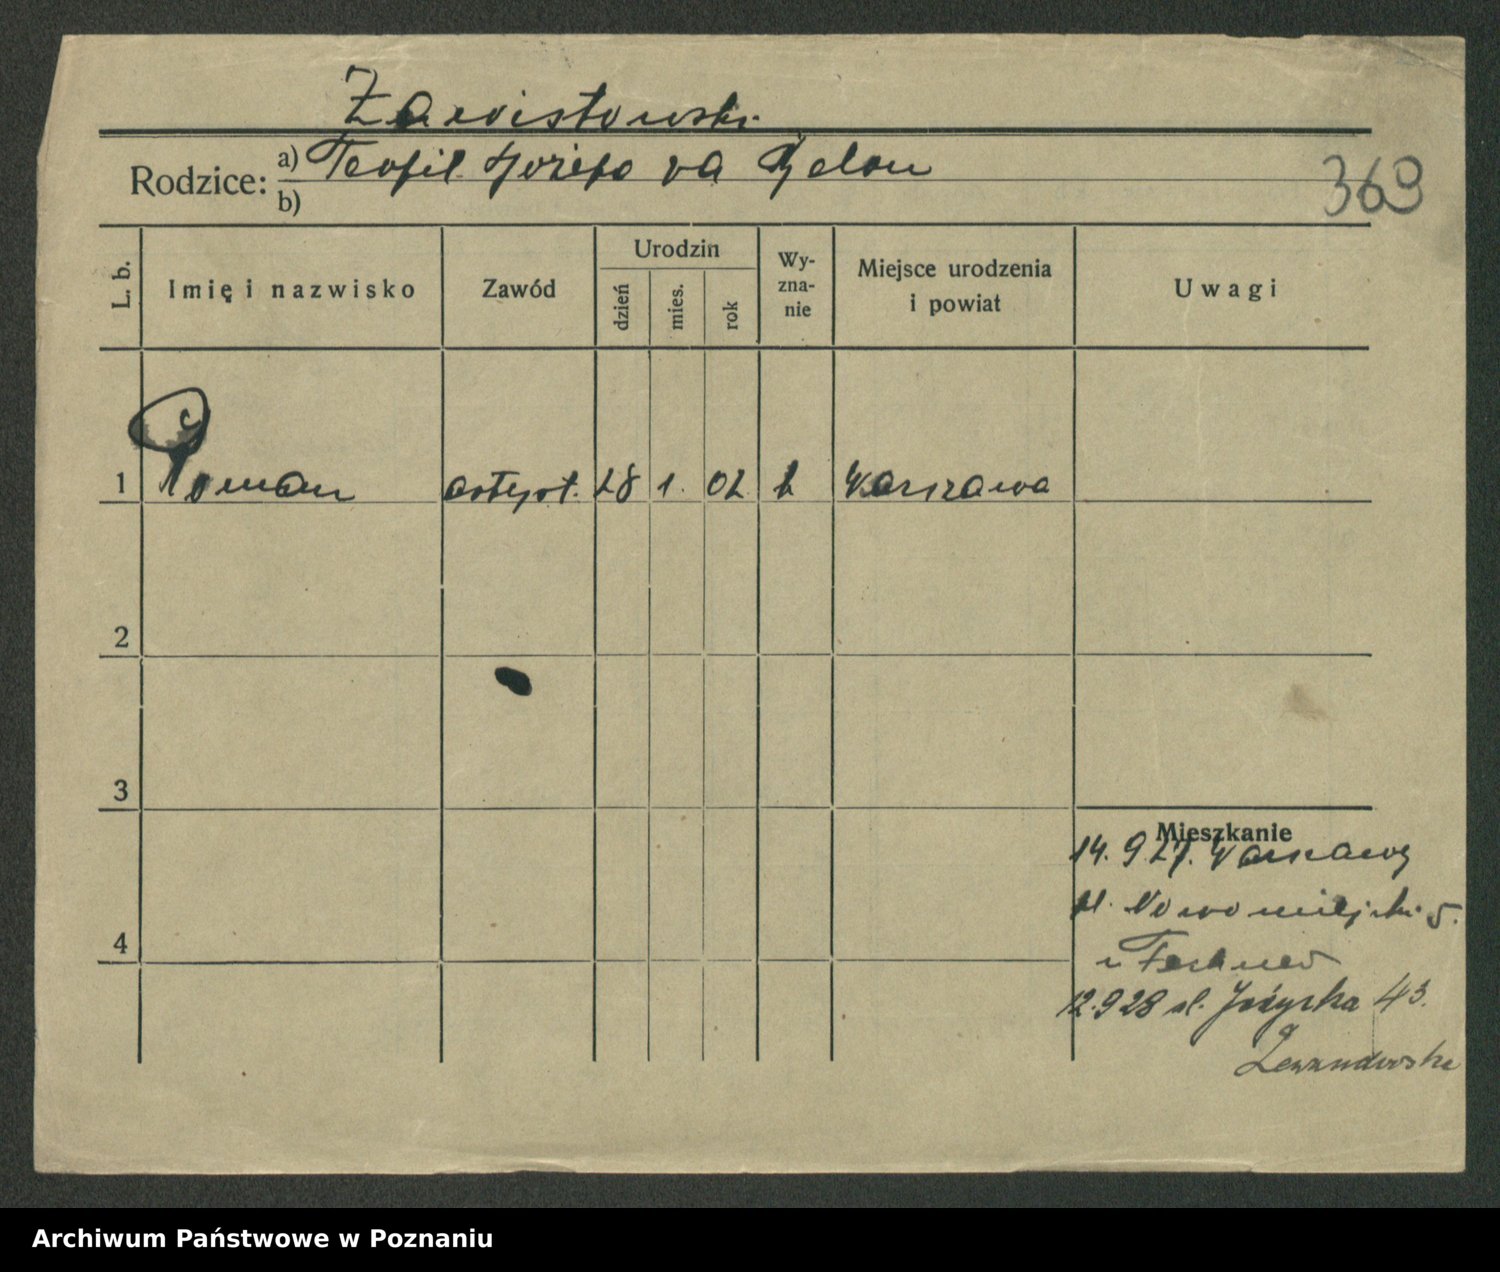 Zawistowski
Rodzice: a) Teofil Józefa
b)
369
L. b.
Imię i nazwisko
Zawód
Urodzin
dzień
mies.
rok
Wy-
zna-
nie
Miejsce urodzenia
i powiat
Uwagi
1 Roman 28 1. 02 Warszawa
2
3
4
Mieszkanie
14. 9. 27. Warszawy
Nowomiejski 5.
12.9 28 ul. 43.
Lewandowska
Archiwum Państwowe w Poznaniu